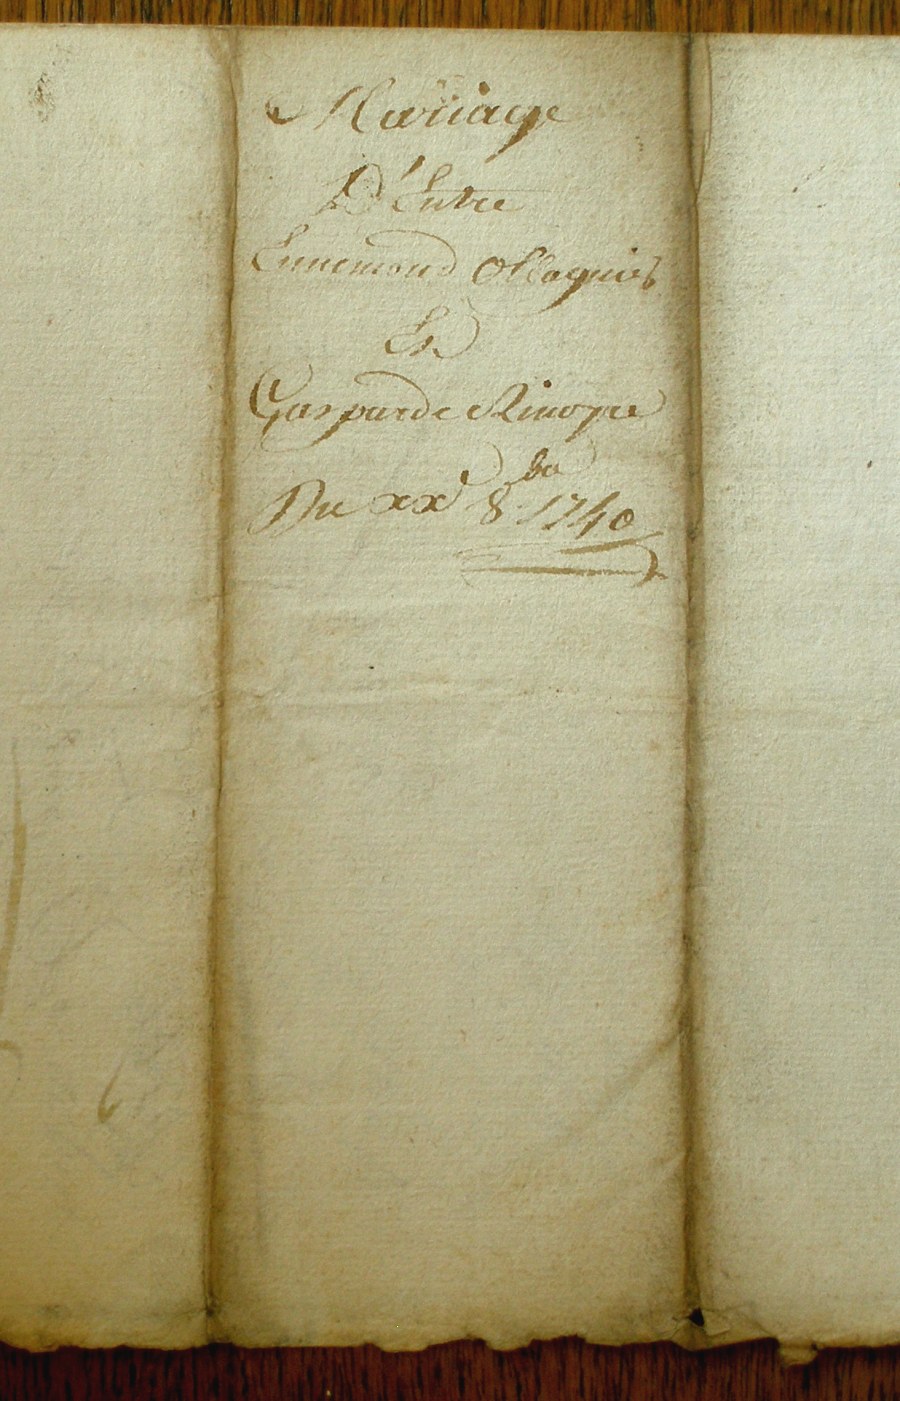 Mariage
D'Entre
Ennemond Ollagnier
Et
Gasparde Rivoyre
Du xxe 8bre 1740